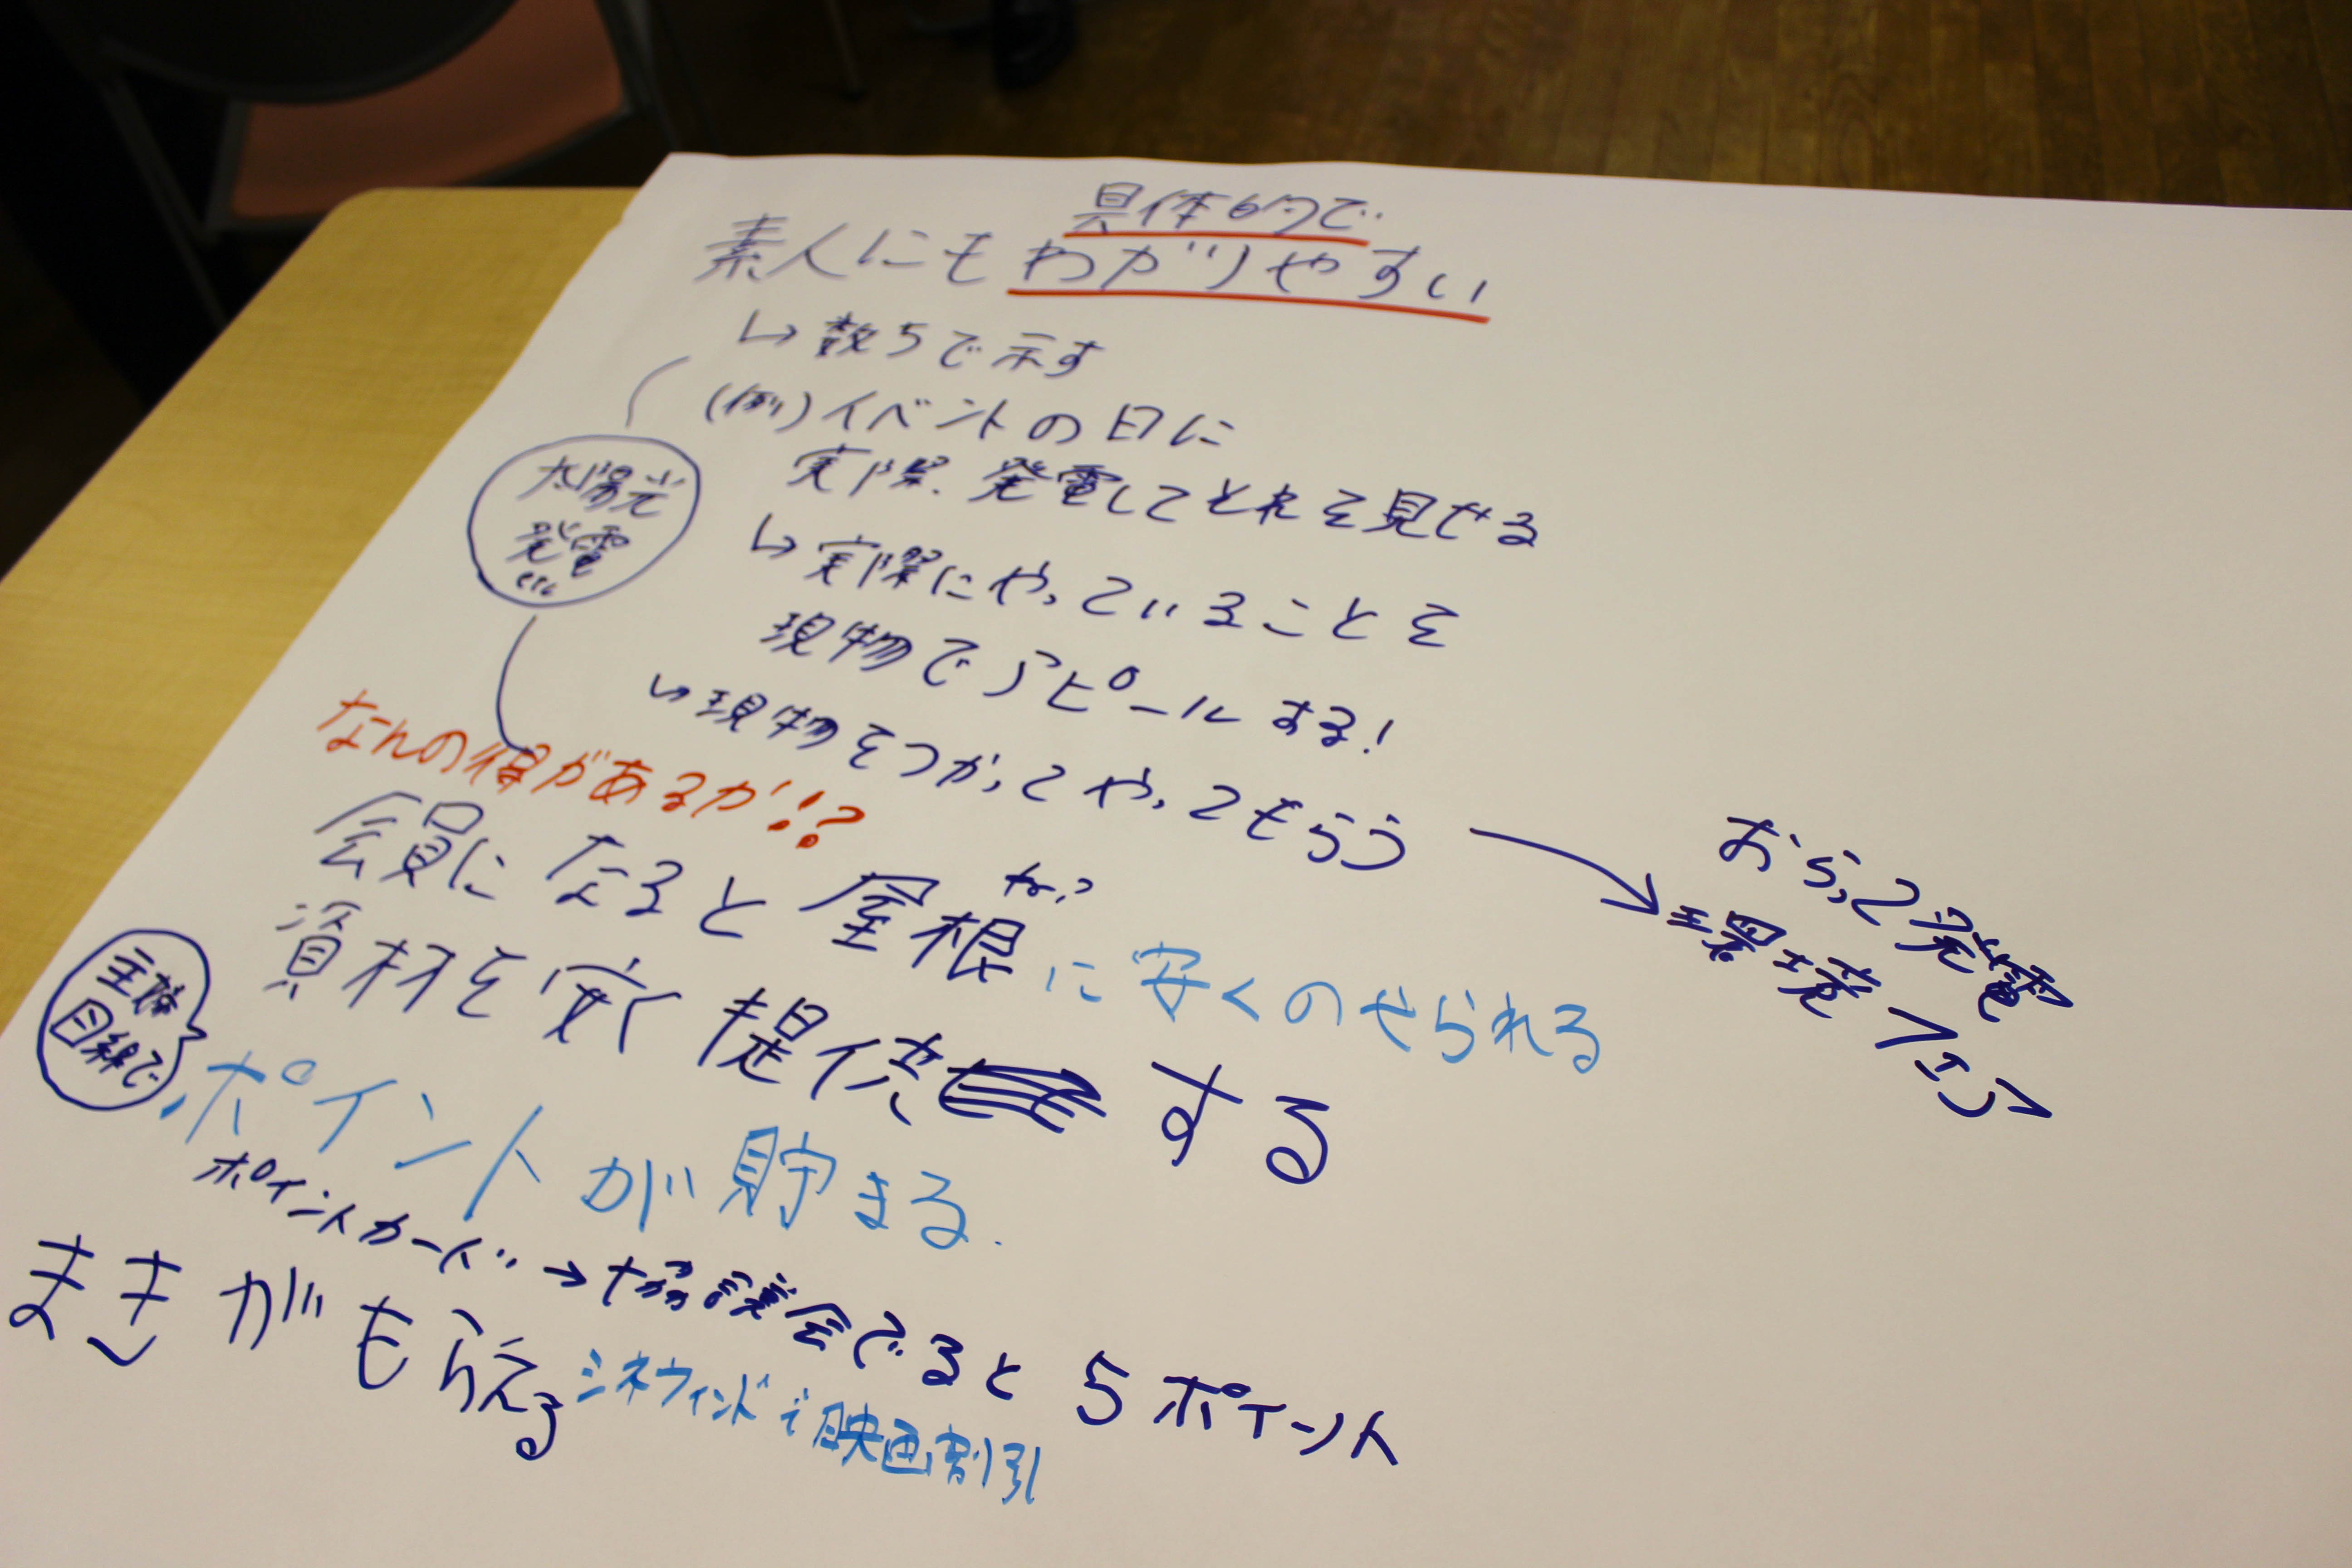 具体的で
素人にもわかりやすい
↳ 数字で示す
(例)イベントの日に
実際、発電してそれを見せる
太陽光
発電
etc
↳ 実際にやっていることを
現物でアピールする!
↳ 現物をつかってやってもらう
おらって発電
環境フェア
なんの得があるか!?
会員になると屋根に安くのせられる
資材を安く提供する
主婦
目線で
ポイントが貯まる.
ポイントカード→協議会でると5ポイント
まきがもらえる
シネウィンドで映画割引